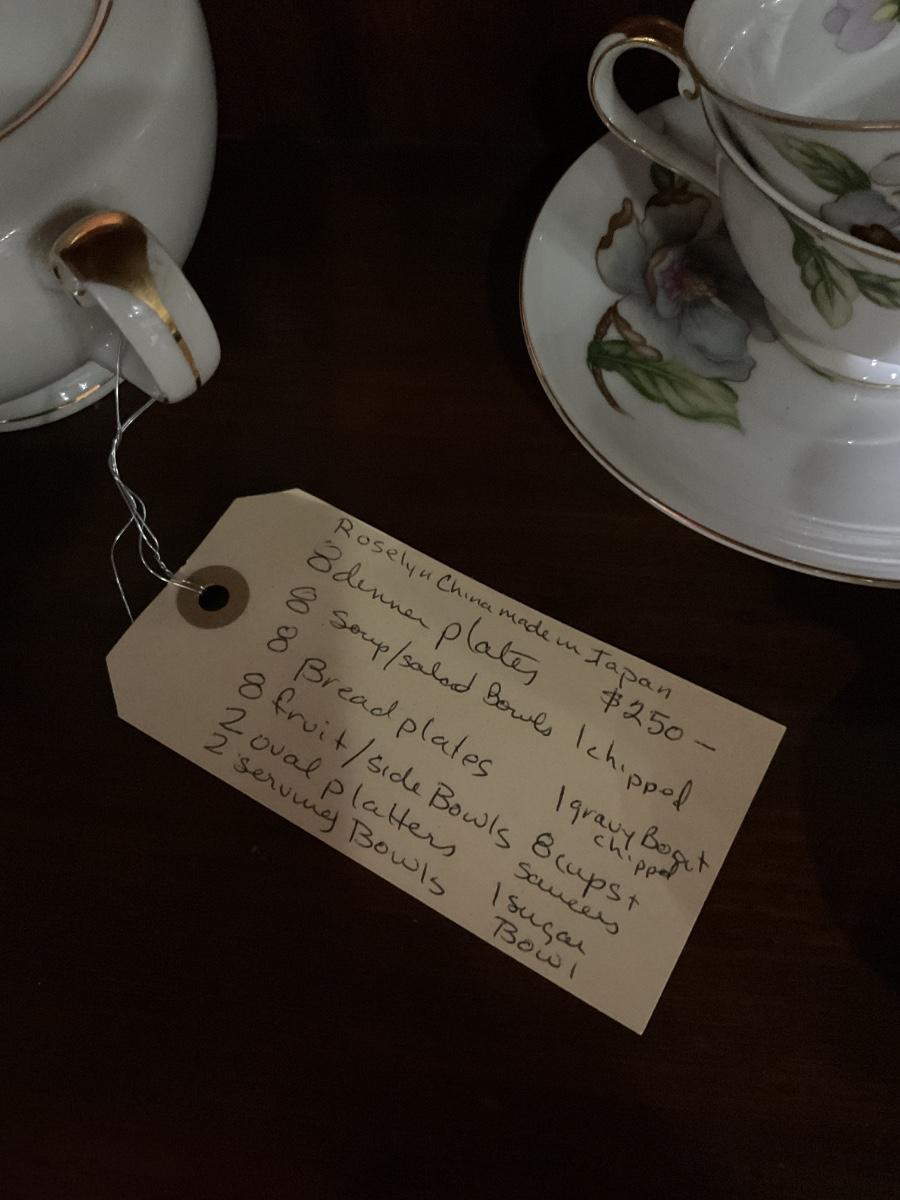 Roselyn China made in Japan
8 denner plates $250 –
8 soup/salad Bowls 1 chipped
8 Bread plates 1 gravy Boat
chipped
8 fruit/side Bowls 8 cups +
saucers
2 oval platters 1 sugar
Bowl
2 serving Bowls